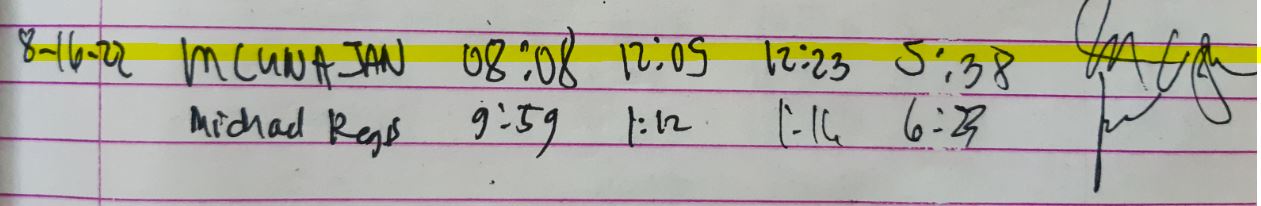 8-16-22 MCUNA JAN 08:08 12:05 12:23 5:38
Michael 9:59 1:12 6:23